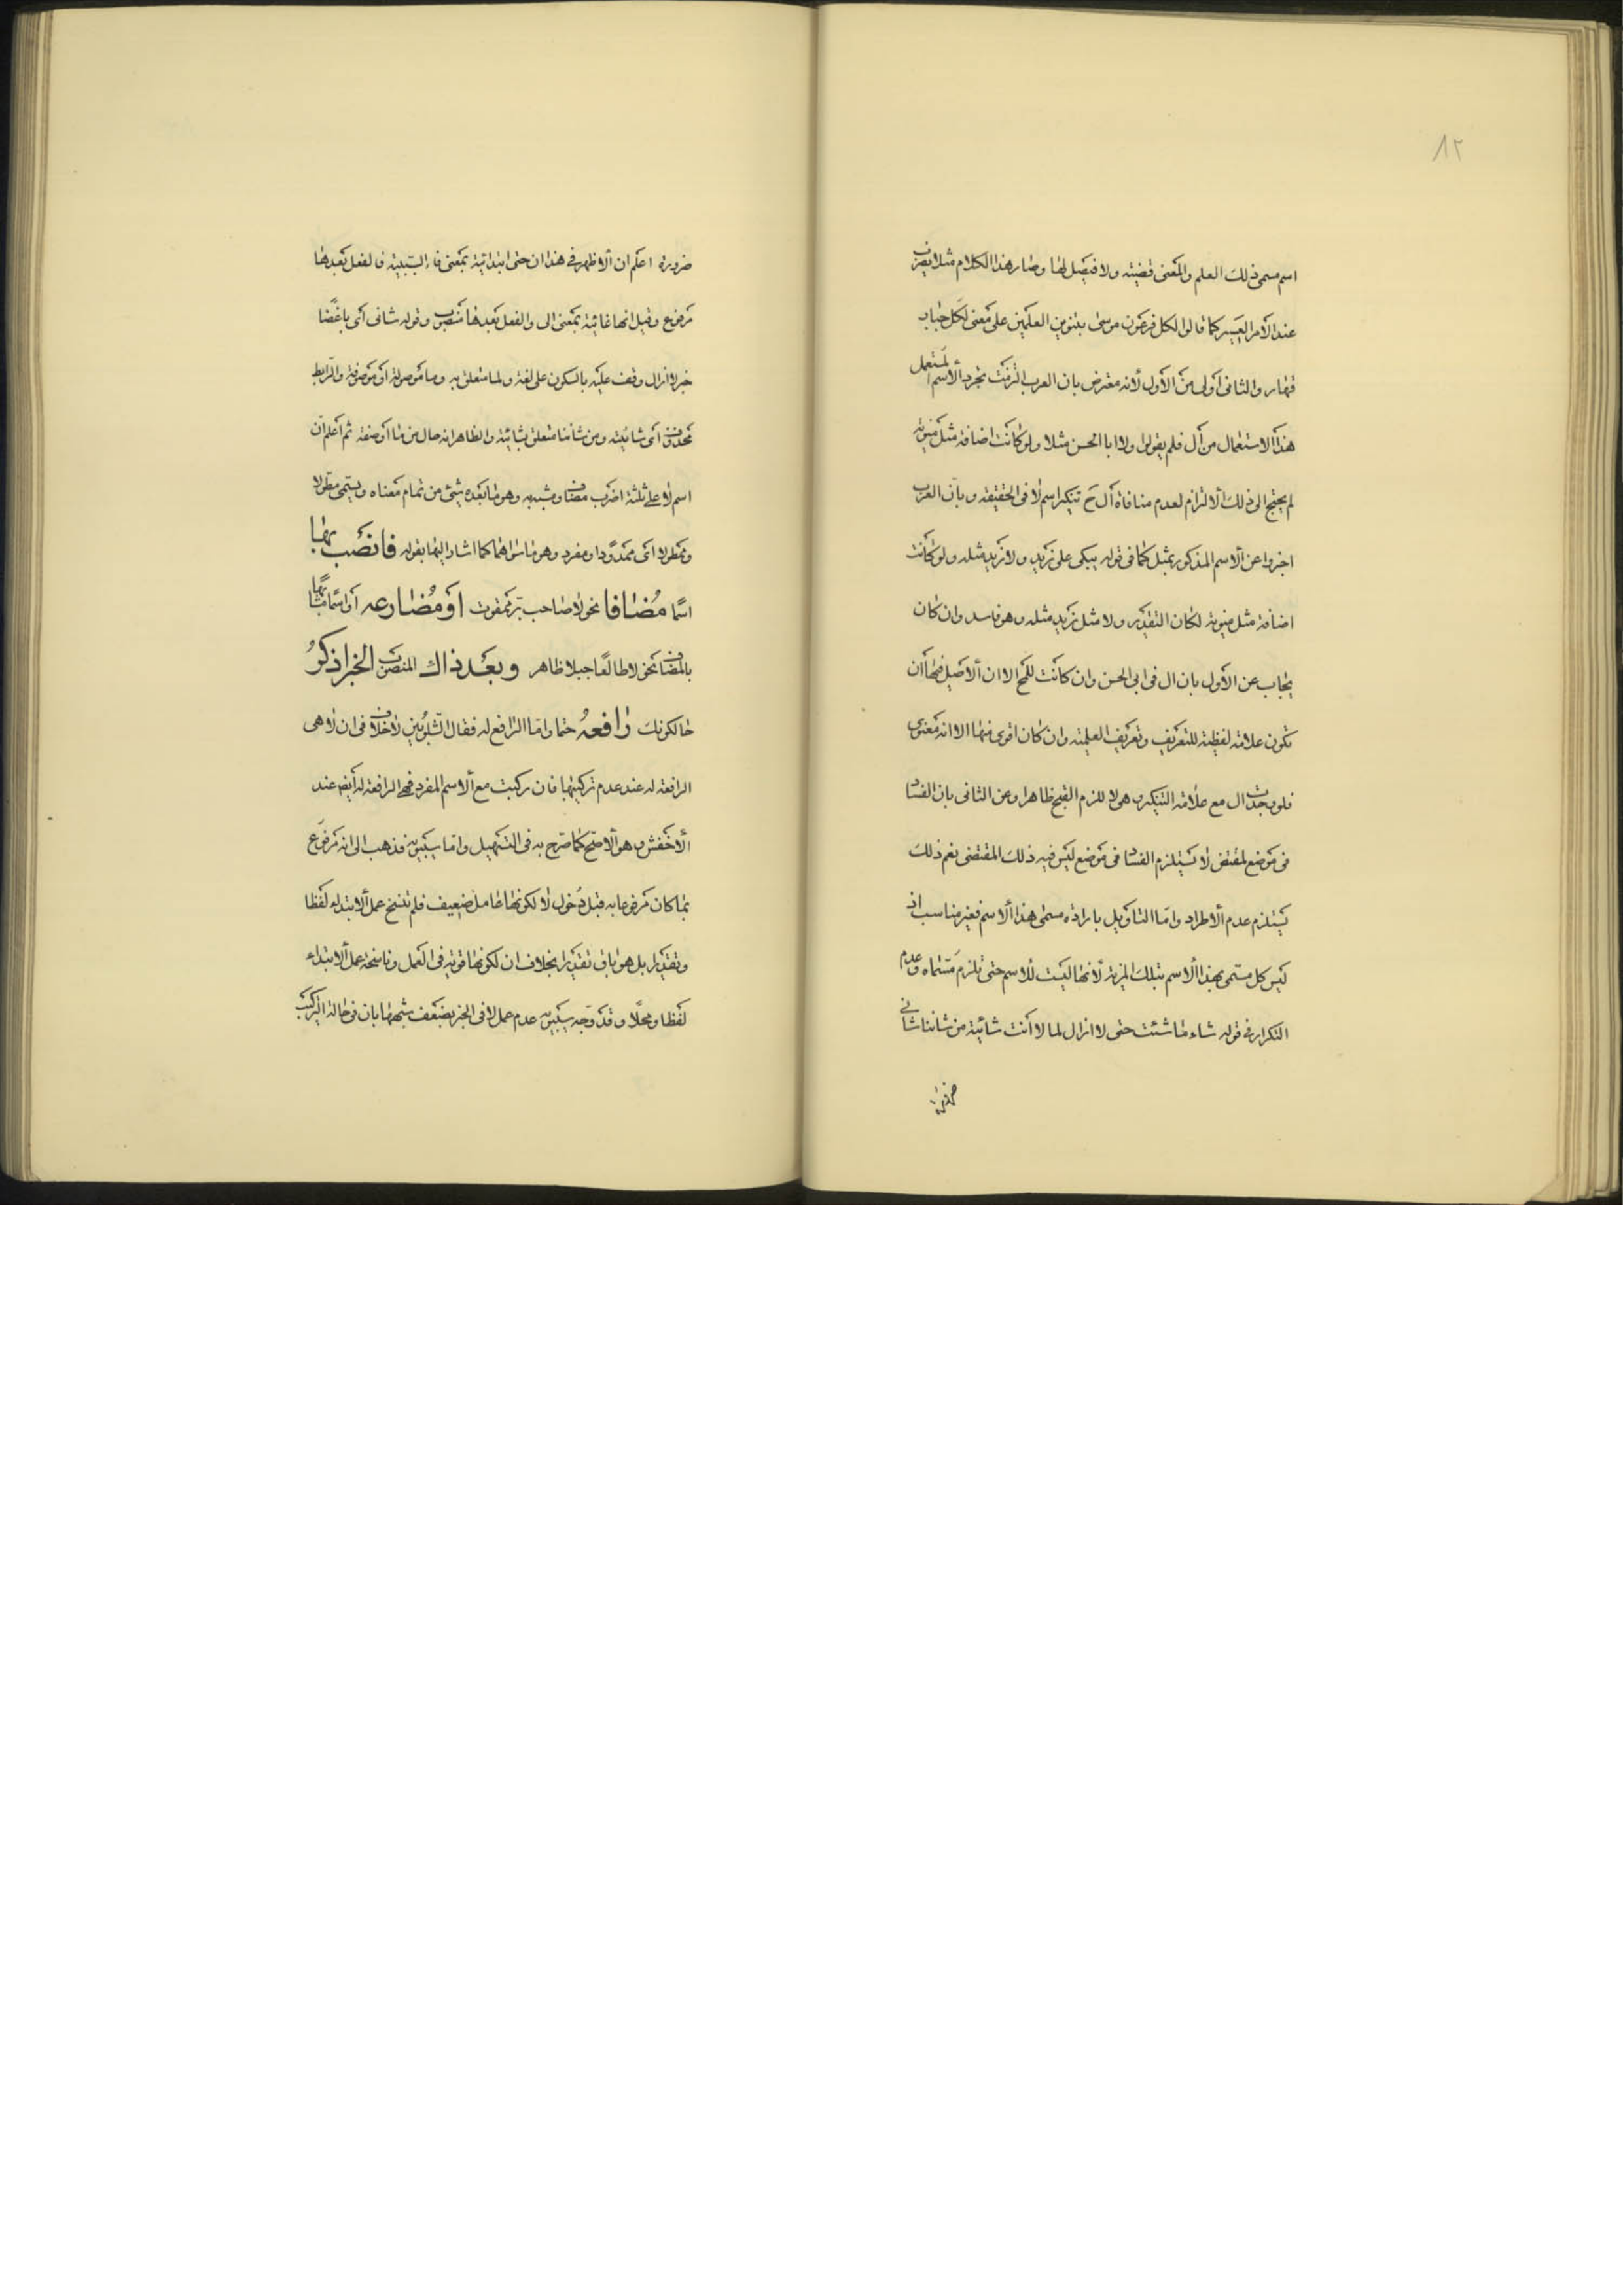 ٨٢
اسم مسمى ذلك العلم والمعنى قضيته ولا فيصل لها وصار هذا الكلام مثلا يضرب
عند الأمر العسير كما قالوا لكل فرعون موسى بتنوين العلمين على معنى لكل جبار
قهار والثانى أولى من الأول لأنه معترض بان العرب التزمت تجرد الأسم المستعمل
هذا الاستعمال من أل فلم يقولوا ولا ابا الحسن مثلا ولو كانت اضافة مثل منوية
لم يحتج الى ذلك الالتزام لعدم منافاة أل ح تنكير اسم لا فى الحقيقة وبأن العرب
اخبروا عن الأسم المذكور بمثل كما فى قوله يبكى على زيد ولا زيد مثله ولو كانت
اضافة مثل منوية لكان التقدير ولا مثل زيد مثله وهو فاسد وان كان
يجاب عن الأول بان ال فى ابى الحسن وان كانت للمح الا ان الأصل فيها أن
تكون علامة لفظية للتعريف وتعريف العلمية وان كان اقوى منها الا انه معنوى
فلو وجدت ال مع علامة التنكير وهى لا للزم القبح ظاهرا وعن الثانى بان الفساد
فى موضع لمقتض لا يستلزم الفساد فى موضع ليس فيه ذلك المقتضى نعم ذلك
يستلزم عدم الأطراد واما التاويل بارادة مسمى هذا الأسم فغير مناسب اذ
ليس كل مسمى بهذا الأسم بتلك المزية لأنها ليست للاسم حتى تلزم مسماه وعدم
التكرار فى قوله شاء ما شئت حتى لا ازال لما لا أنت شائية من شاننا شانى
ضرورة
ضرورة اعلم ان الأظهر فى هذا ان حتى ابتدائية بمعنى فاء السببية فالفعل بعدها
مرفوع وقيل انها غائية بمعنى الى والفعل بعدها منصوب وقوله شانى أى باغضا
خبر لا ازال وقف عليه بالسكون على لغة ولما متعلق به وما موصولة او موصوفة والرابط
محذوف أى شائيته ومن شاننا متعلق بشائية والظاهر انه حال من ما أو صفة ثم اعلم أن
اسم لا على ثلثة اضرب مضاف وشبهه وهو ما بعده شىء من تمام معناه ويسمى مطولا
وممطولا اى ممدودا ومفرد وهو ما سواهما كما اشار اليها بقوله فانصب بها
اسما مضافا نحو لا صاحب بر ممقوت او مضارعه أى اسما مشابها
بالمضاف نحو لا طالعا جبلا ظاهر وبعد ذاك المنصوب الخبر اذكر
حالكونك رافعه حتما واما الرافع له فقال الشلوبين لا خلاف فى ان لا هى
الرافعة له عند عدم تركيبها فان ركبت مع الأسم المفرد فهى الرافعة له أيضا عند
الأخفش وهو الأصح كما صرح به فى التسهيل واما سيبويه فذهب الى انه مرفوع
بما كان مرفوعا به قبل دخول لا لكونها عاملا ضعيف فلم تنسخ عمل الابتداء لفظا
وتقديرا بل هو باق تقديرا بخلاف ان لكونها قوية فى العمل وناسخة عمل الابتداء
لفظا ومحلا وقد وجه سيبويه عدم عمل لا فى الخبر بضعف شبهها بان فى حالة التركيب